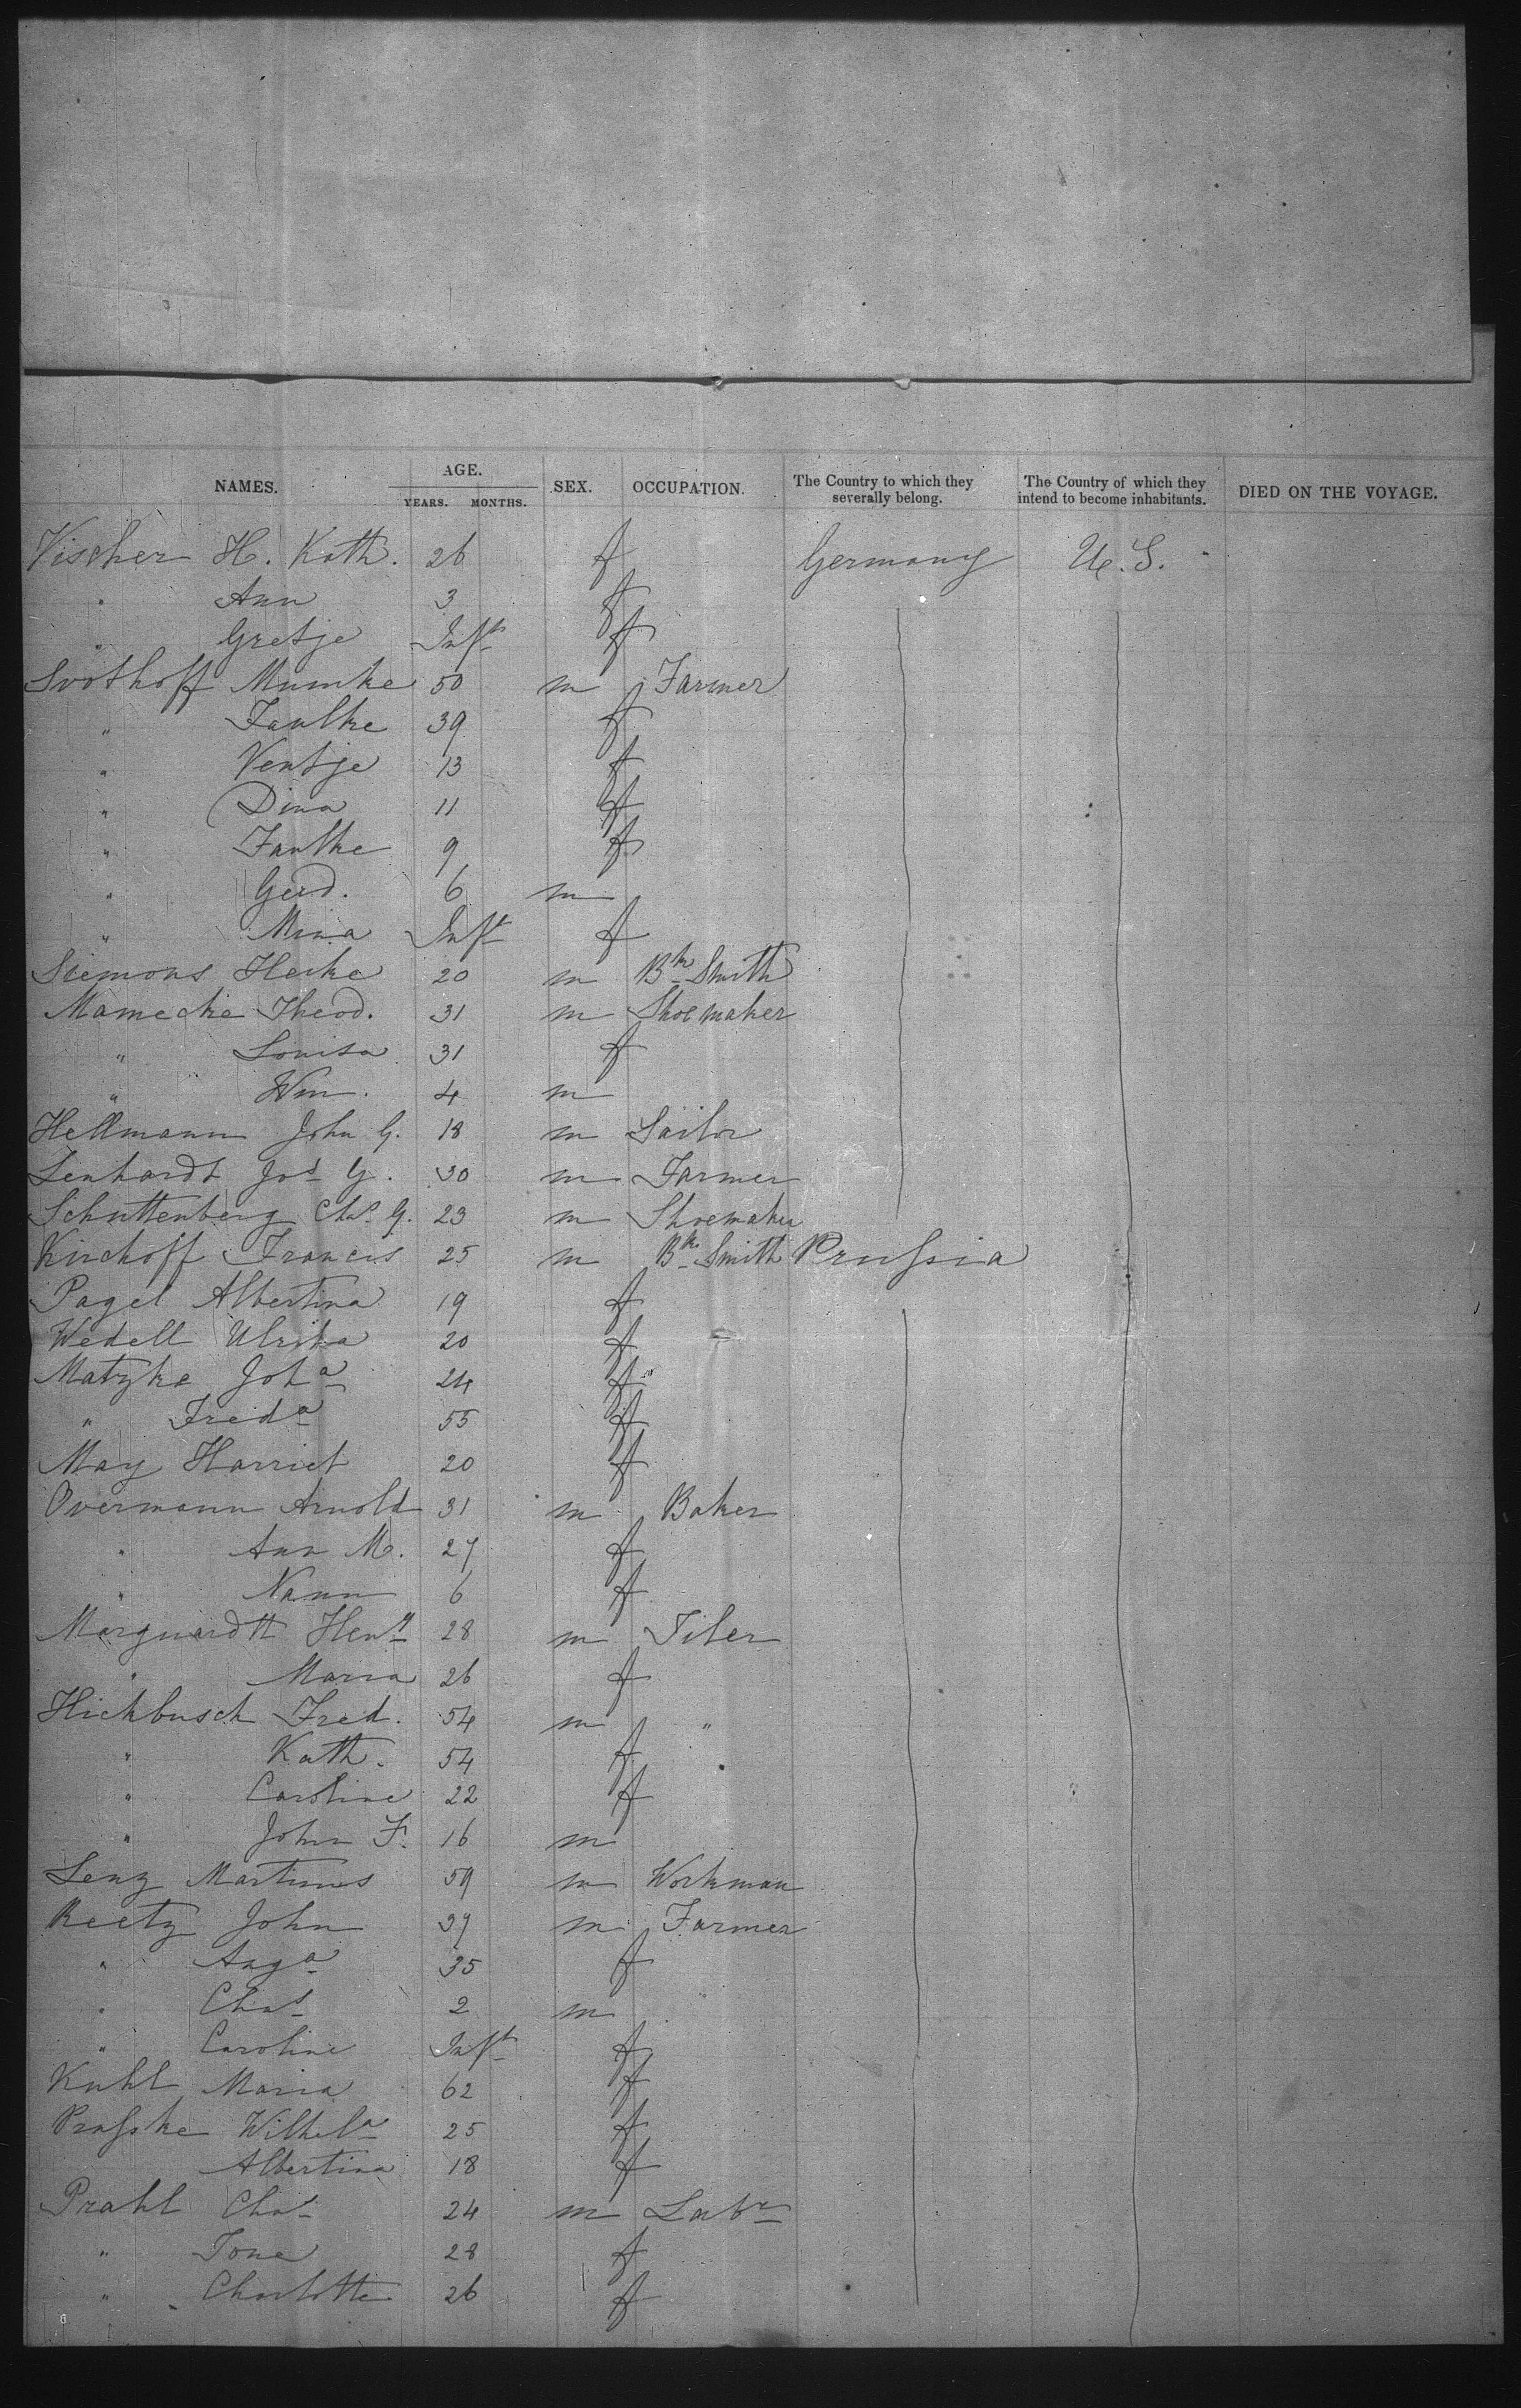 NAMES. AGE. YEARS. MONTHS. SEX. OCCUPATION. The Country to which they severally belong. The Country of which they intend to become inhabitants. DIED ON THE VOYAGE.
Vischer H. Kath. 26 f Germany U.S.
" Ann 3 f
" Gretje Inft f
Svothoff Mumke 50 m Farmer
" Faulke 39 f
" Ventje 13 f
" Dina 11 f
" Faulke 9 f
" Gerd. 6 m
" Mina Inft f
Siemons Heike 20 m Bk Smith
Mamecke Theod. 31 m Shoemaker
" Louisa 31 f
" Wm. 4 m
Hellmann John G. 18 m Sailor
Lenhardt Jos G. 30 m Farmer
Schuttenberg Chs. G. 23 m Shoemaker
Kirchoff Francis 25 m Bk Smith Prussia
Pagel Albertina 19 f
Wedell Ulrika 20 f
Matzke Joha 24 f
" Freda 55 f
May Harriet 20 f
Overmann Arnold 31 m Baker
" Ann M. 27 f
" Nann 6 f
Marguardtt Heny 28 m Tiler
" Maria 26 f
Hickbusch Fred. 54 m "
" Kath. 54 f
" Caroline 22 f
" John F. 16 m
Lenz Martinus 59 m Workman
Reetz John 37 m Farmer
" Auga 35 f
" Chas 2 m
" Caroline Inft f
Kuhl Maria 62 f
Prasske Wilhela 25 f
Albertina 18 f
Prahl Chas 24 m Labr
" Tone 28 f
" Charlotte 26 f